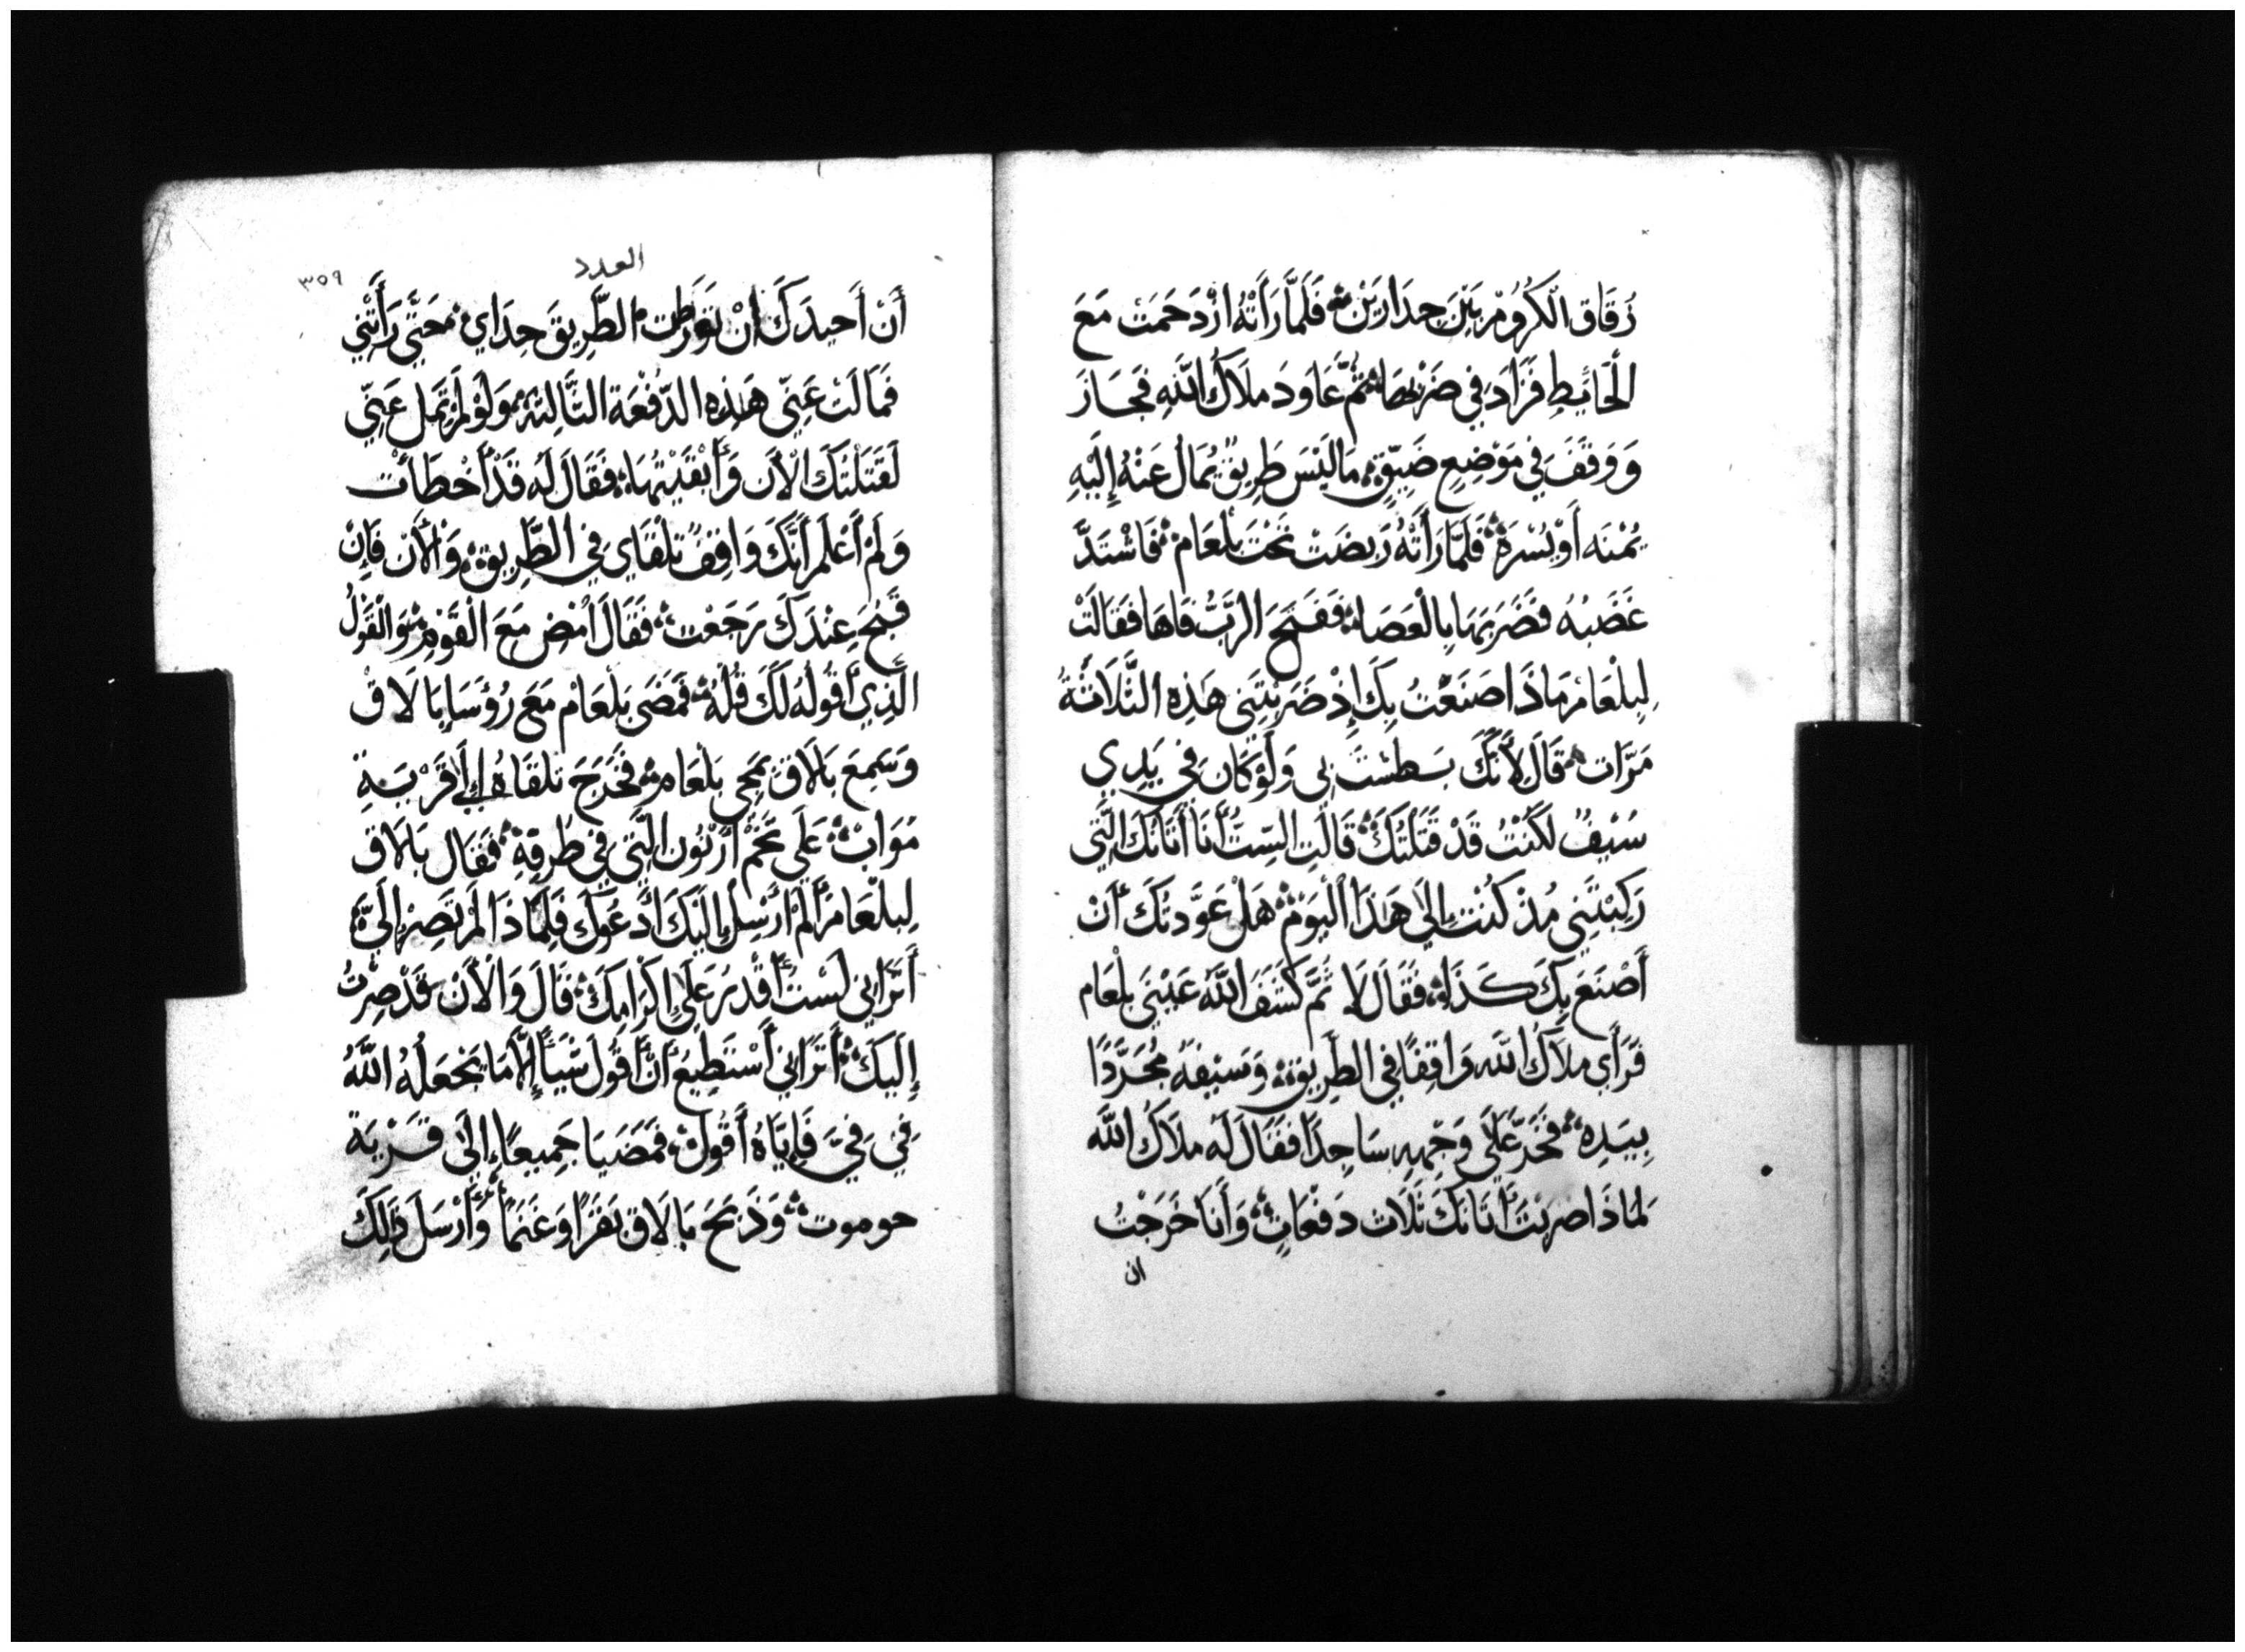 زُقَاقِ الْكُرُومْ بَيْنَ جِدَارَيْنْ؞ فَلَمَّا رَأَتْهُ ازْدَحَمَتْ مَعَ
الْحَائِيطِ فَزَادَ فِي ضَرْبِهَا؞ ثُمَّ عَاوَدَ مَلَاكُ اللَّهِ فَجَازَ
وَوَقَفَ فِي مَوْضِعٍ ضَيِّقٍ؞ مَا لَيْسَ طَرِيقٌ يُمَالُ عَنْهُ إِلَيْهِ
يُمْنَه أَوْ يُسْرَة؞ فَلَمَّا رَأَتْهُ رَبَضَتْ تَحْتَ بَلْعَامْ؞ فَاشْتَدَّ
غَضَبُهُ فَضَرَبَهَا بِالْعَصَا؞ فَفَتَحَ الرَّبُّ فَاهَا فَقَالَتْ
لِبِلْعَامْ مَاذَا صَنَعْتُ بِكَ إِذْ ضَرَبْتَنِي هَذِهِ الثَّلَاثَةُ
مَرَّات؞ قَالَ لِأَنَّكَ بَسَطْتَ بِي وَلَوْ كَانَ فِي يَدِي
سَيْفٌ لَكُنْتُ قَدْ قَتَلْتُكَ؞ قَالَتِ السِّتُّ أَنَا أَتَانُكَ الَّتِي
رَكِبْتَنِي مُذْ كُنْتَ إِلَى هَذَا الْيَوْمْ؞ هَلْ عَوَّدتُكَ أَنْ
أَصْنَعَ بِكَ كَذَا؞ فَقَالَ لَا ثُمَّ كَشَفَ اللَّهُ عَيْنَيْ بلْعَام
فَرَأَى مَلَاكُ اللَّه وَاقِفًا فِي الطَّرِيقِ؞ وَسَيْفَهُ مُجَرَّدًا
بِيَدِه؞ فَخَرَّ عَلَى وَجْهِهِ سَاجِدًا فَقَالَ لَه مَلَاكُ اللَّه
لِمَاذَا ضَرَبْتَ أَتَانَكَ ثَلَاث دَفْعَاتٍ؞ وَأَنَا خَرَجْتُ
ان
العدد
٣٥٩
أَنْ أَحِيدَكَ أَنْ تَوَرَّطت الطَّرِيقَ حِدَاي؞ حَتَّى رَأَتْنِي
فَمَالَتْ عَنِّي هَذِهِ الدَّفْعَة الثَّالِثَة؞ وَلَوْ لَمْ تَمِل عَنِّي
لَقَتَلْتُكَ الْآنَ وَأَبْقَيْتُهَا؞ فَقَالَ لَهُ قَدْ أَخْطَأْت
وَلَمْ أَعْلَمْ أَنَّكَ وَاقِفٌ تِلْقَاي فِي الطَّرِيقِ؞ وَالْآنَ فَإِنْ
قَبُحَ عِنْدَكَ رَجَعْت؞ فَقَالَ أَمْضِ مَعَ الْقَوْمِ؞ وَالْقَوْلُ
الَّذِي أَقُولُهُ لَكَ قُلْهُ؞ فَمَضَى بَلْعَامْ مَعَ رُؤَسَا بَالَاقْ
وَسَمِعَ بَالَاقْ بِمَجِي بَلْعَام؞ فَخَرَجَ تلْقَاهُ إِلَى قَرْيَةِ
مُوَابْ؞ عَلَى تَخْمْ أَرْنُون الَّتِي فِي طَرفِهِ؞ فَقَال بَالَاق
لِبلْعَامْ أَلَمْ أُرْسِلْ إِلَيْكَ أَدْعُوكَ فَلِمَاذَا لَمْ تَصِرْ إِلَيَّ؞
أَتَرَانِي لَسْتُ أَقْدِرَ عَلَى إِكْرَامِكَ؞ قَالَ وَالْآنَ قَدْ صِرْتُ
إِلَيكَ؞ أَتَرَانِي أَسْتَطِيعُ أَنْ أَقُولَ شَيْئًا إِلَّا مَا يَجْعَلُهُ اللَّهُ
فِي فِيَّ فَإِيَّاهُ أَقُولْ؞ فَمَضَيَا جَمِيعًا إِلَى قَرْيَة
حوموت؞ وَذَبَحَ بَالَاق بَقَرًا وَغَنَمًا؞ وَأَرْسَلَ ذَلِكَ